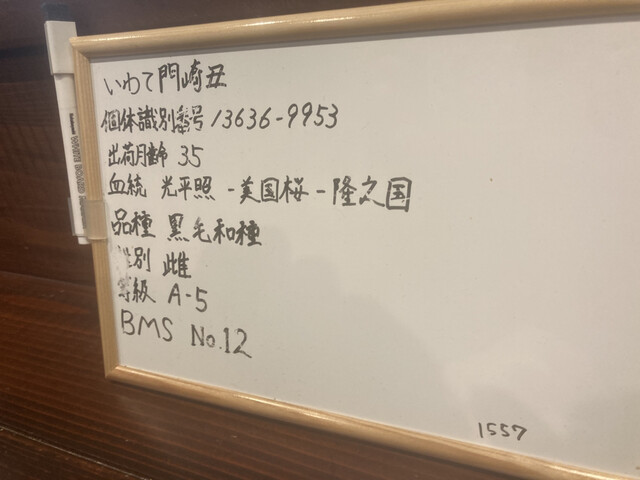 いわて門崎丑
個体識別番号 13636-9953
出荷月齢 35
血統 光平照 - 美国桜 - 隆之国
品種 黒毛和種
性別 雌
等級 A-5
BMS No.12
1557